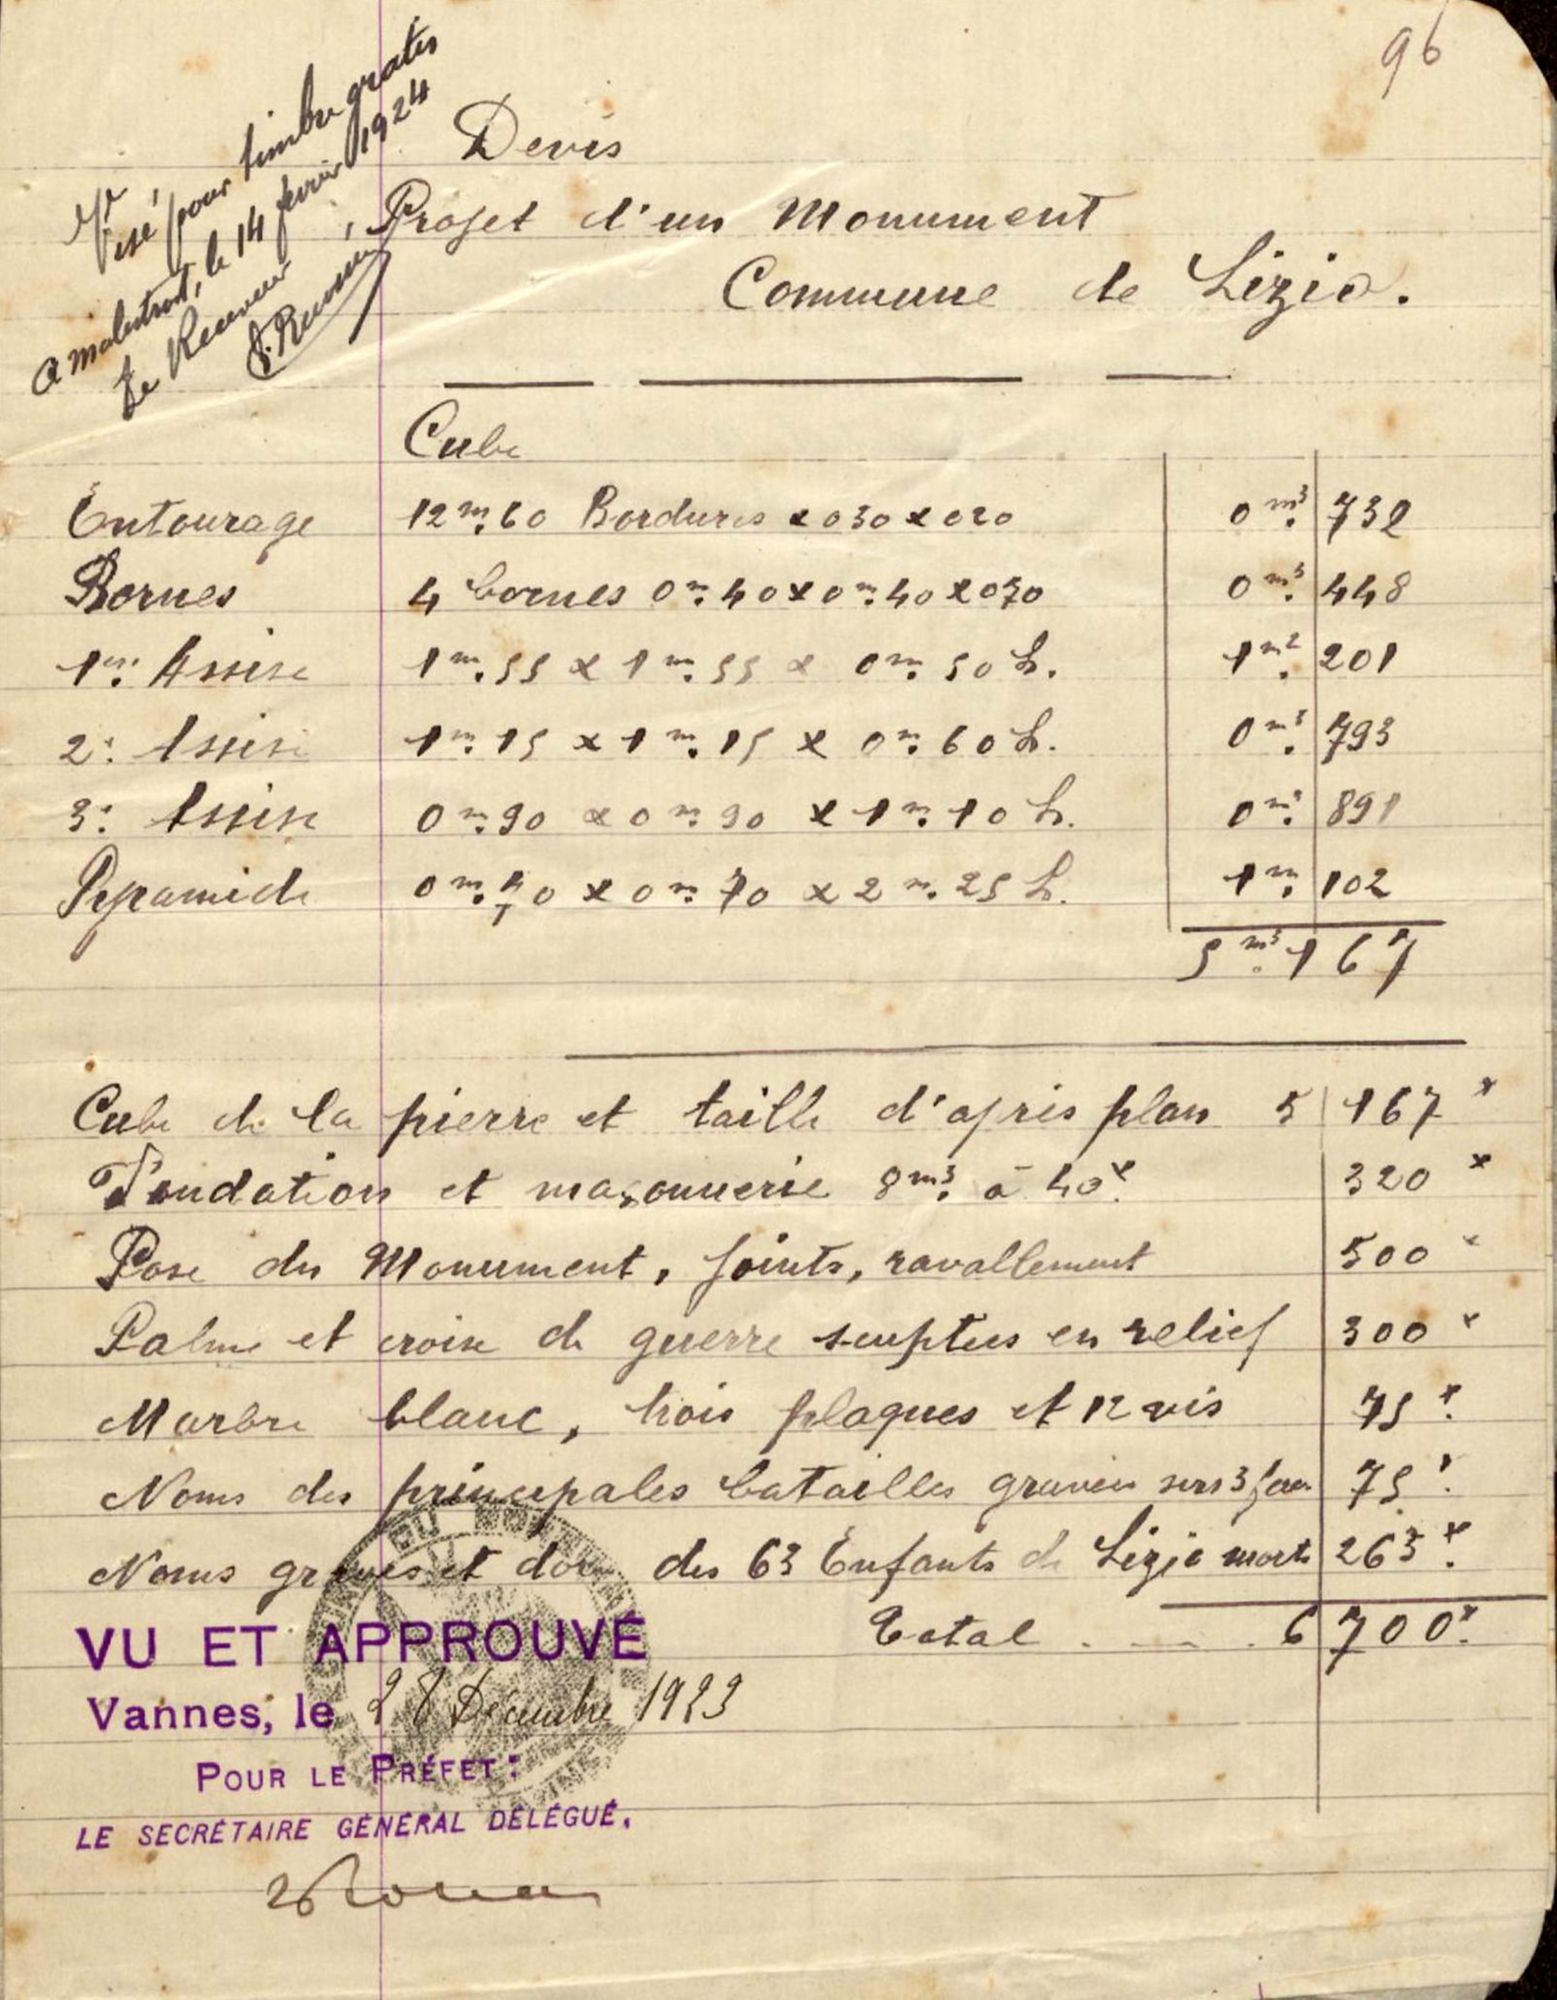 96
Visé pour timbre gratis
A Malestroit, le 14 février 1924
Le Receveur
Devis
Projet d'un Monument
Commune de Lizio.
Cube
Entourage 12m.60 Bordures x 030 x 020 0m3. 732
Bornes 4 bornes 0m.40 x 0m.40 x 070 0m3. 448
1ere Assise 1m.55 x 1m.55 x 0m.50 h. 1m2. 201
2e Assise 1m.15 x 1m.15 x 0m.60 h. 0m3. 793
3e Assise 0m.90 x 0m.90 x 1m.10 h. 0m3. 891
Pyramide 0m.70 x 0m.70 x 2m.25 h. 1m. 102
5m3. 167
Cube de la pierre et taille d'après plan 5 167 x
Fondation et maçonnerie 8m3. à 40x. 320 x
Pose du Monument, joints, ravallement 500 x
Palme et croix de guerre sculptées en relief 300 x
Marbre blanc, trois plaques et 12 vis 75 x.
Noms des principales batailles gravées sur 3 faces 75 x.
Noms gravés et dorés des 63 Enfants de Lizio morts 263 x.
Total . . . . 6 700 x.
VU ET APPROUVÉ
Vannes, le 28 Décembre 1923
POUR LE PRÉFET :
LE SECRÉTAIRE GÉNÉRAL DÉLÉGUÉ,